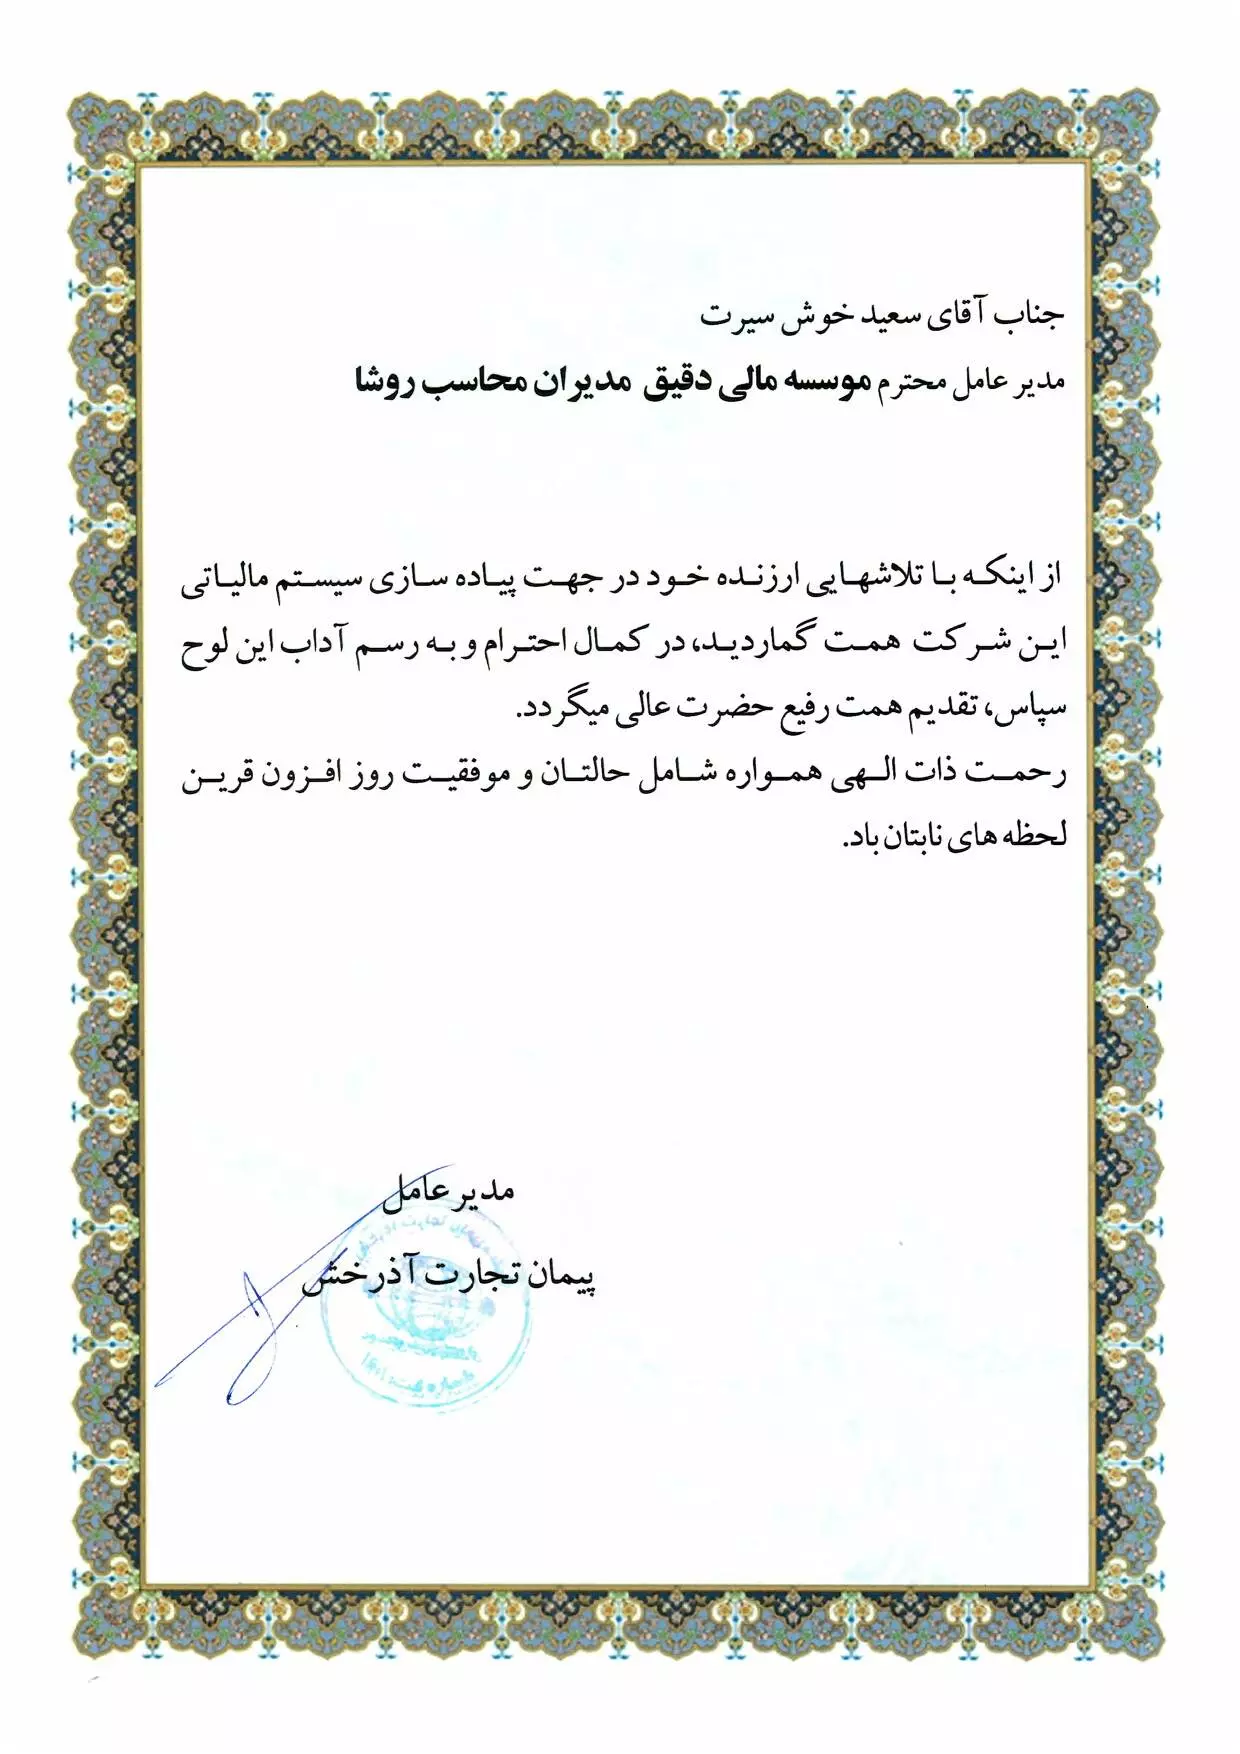 جناب آقای سعید خوش سیرت
مدیر عامل محترم موسسه مالی دقیق مدیران محاسب روشا
از اینکه با تلاشهایی ارزنده خود در جهت پیاده سازی سیستم مالیاتی
این شرکت همت گماردید، در کمال احترام و به رسم آداب این لوح
سپاس، تقدیم همت رفیع حضرت عالی میگردد.
رحمت ذات الهی همواره شامل حالتان و موفقیت روز افزون قرین
لحظه های نابتان باد.
مدیر عامل
پیمان تجارت آذرخش
شماره ثبت